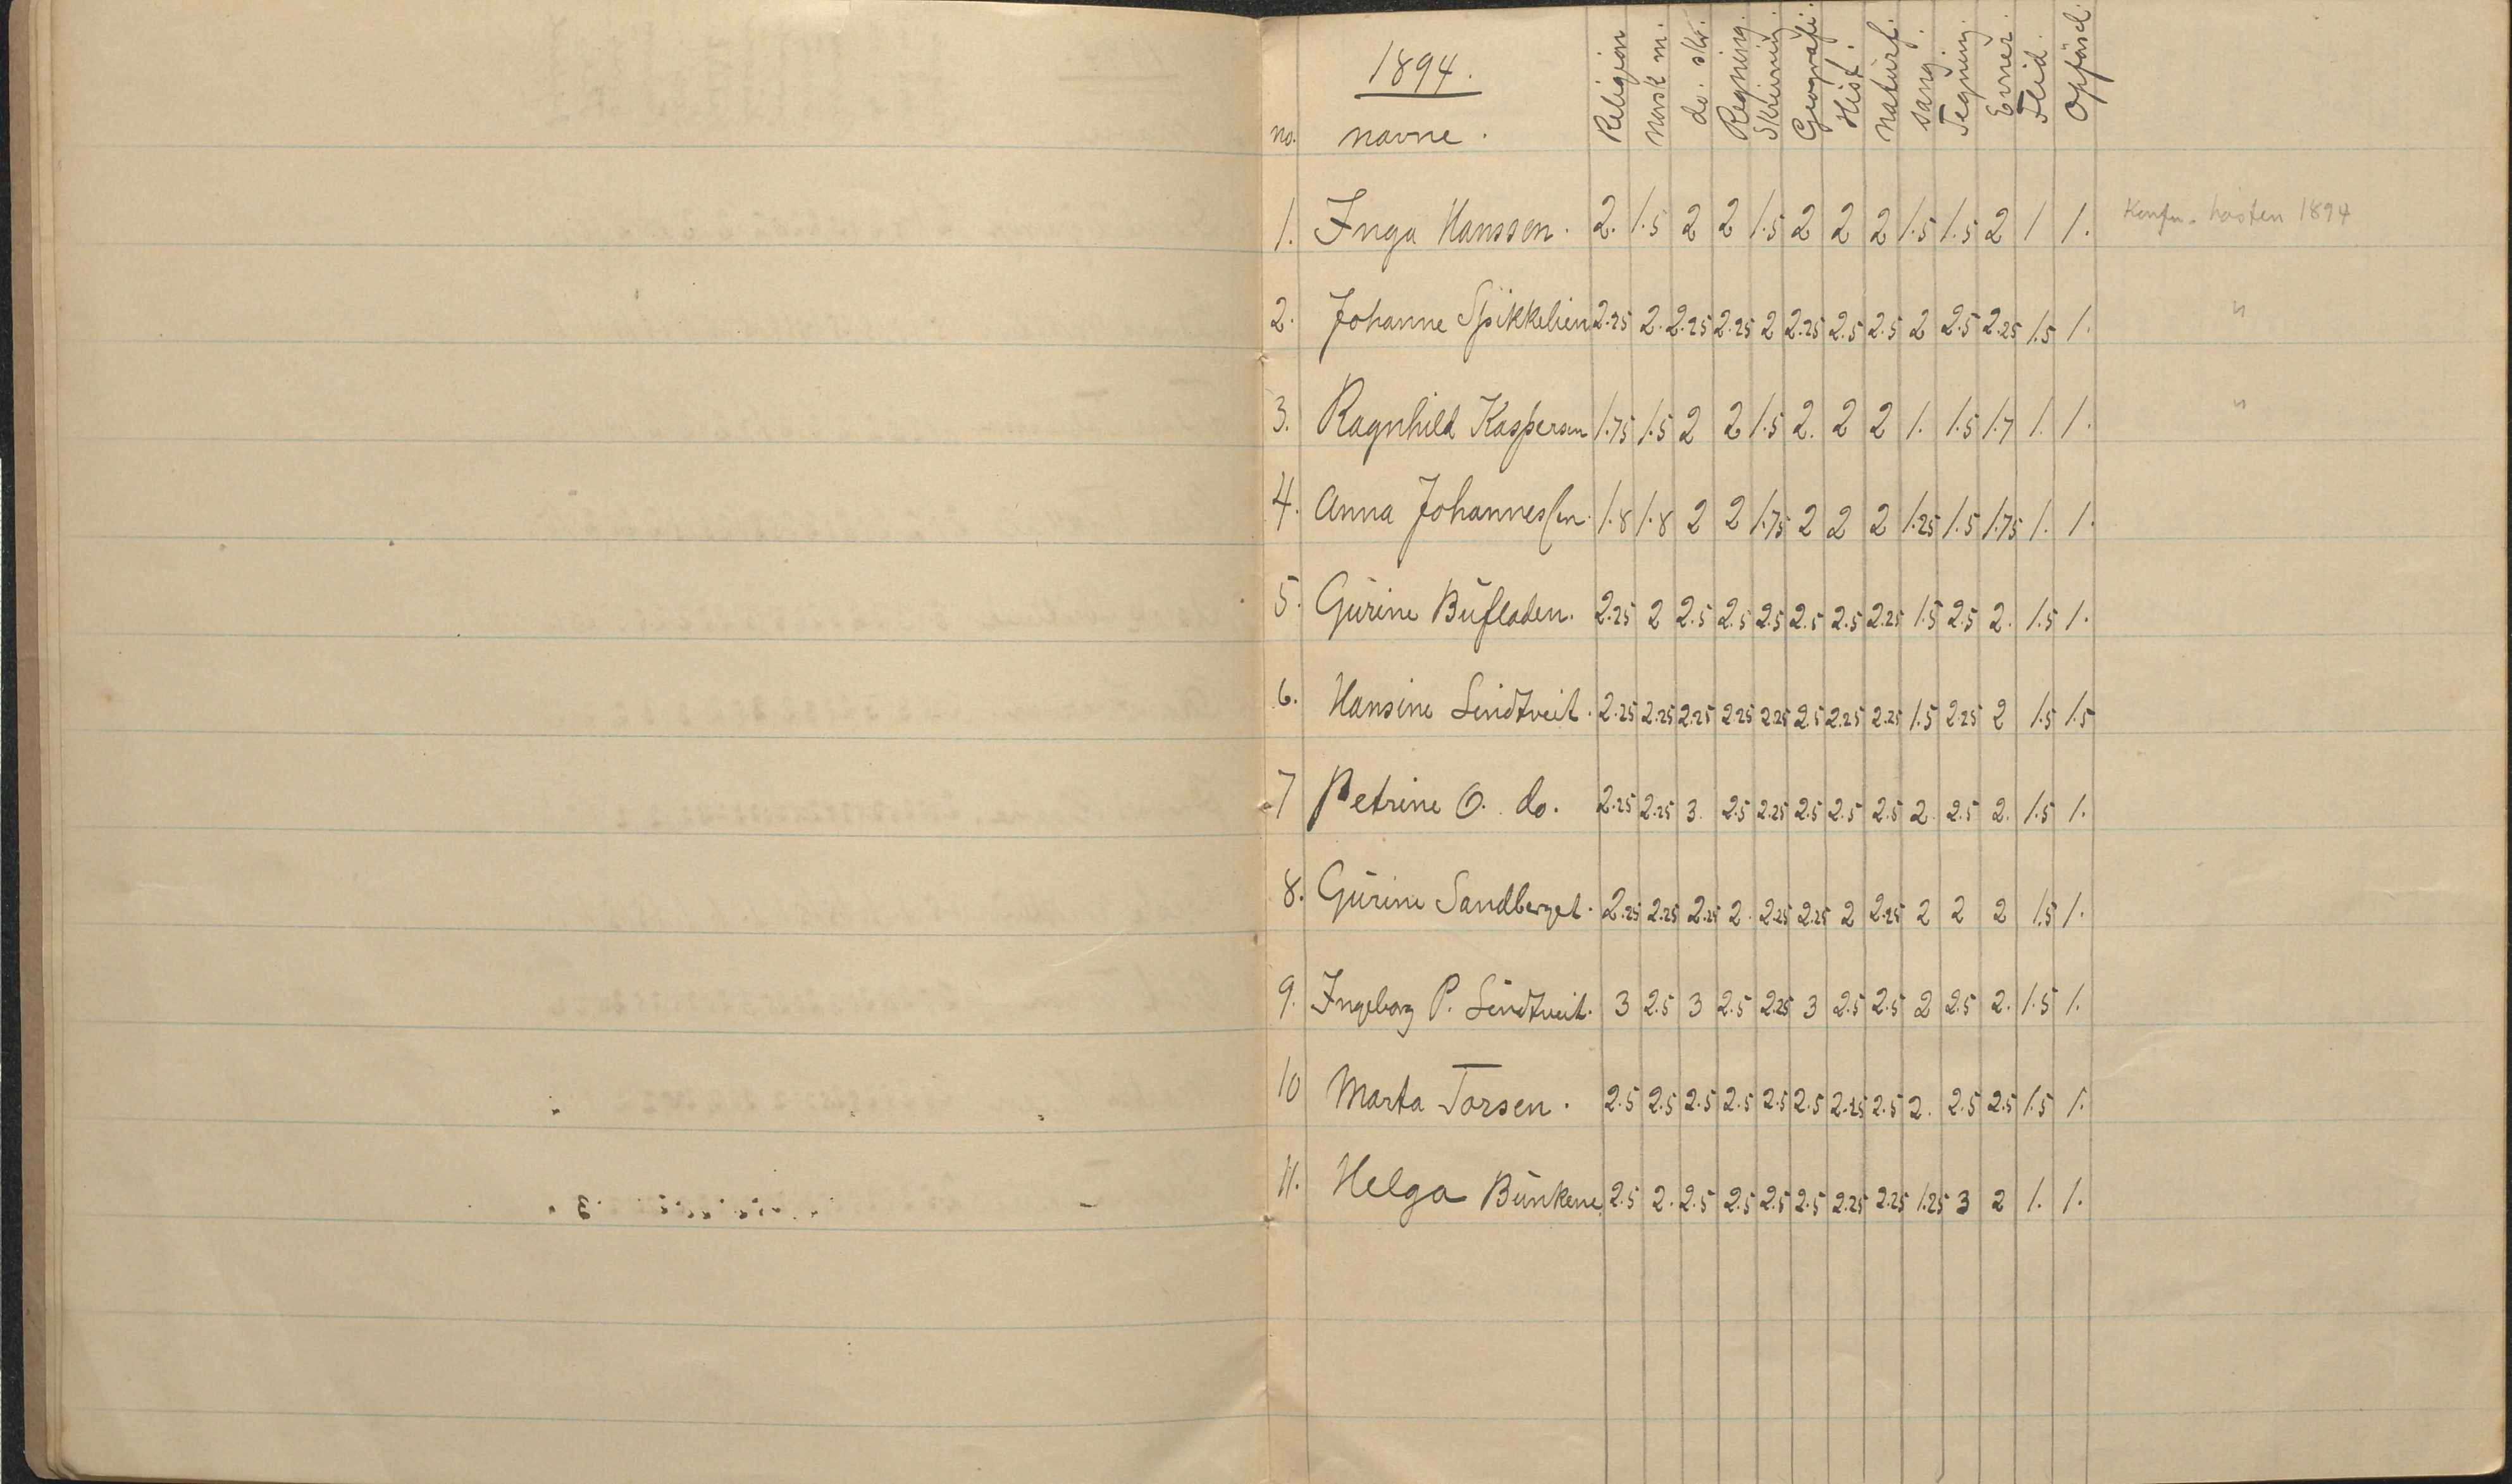 1894.
no. navne. Religion Norsk m. do. skr. Regning. Skrivning. Geografi. Hist. Naturf. Sang. Tegning. Evner. Flid. Opførsel.
1. Inga Hanssen. 2. 1.5 2 2 1.5 2 2 2 1.5 1.5 2 1 1. Konfr. høsten 1894
2. Johanne Spikkelien 2.25 2. 2.25 2.25 2 2.25 2.5 2.5 2 2.5 2.25 1.5 1. "
3. Ragnhild Kaspersen 1.75 1.5 2 2 1.5 2. 2 2 1. 1.5 1.7 1. 1. "
4. Anna Johannessen. 1.8 1.8 2 2 1.75 2 2 2 1.25 1.5 1.75 1. 1.
5. Gurine Bufladen. 2.25 2 2.5 2.5 2.5 2.5 2.5 2.25 1.5 2.5 2. 1.5 1.
6. Hansine Lindtveit. 2.25 2.25 2.25 2.25 2.25 2.5 2.25 2.25 1.5 2.25 2 1.5 1.5
7 Petrine O. do. 2.25 2.25 3. 2.5 2.25 2.5 2.5 2.5 2. 2.5 2. 1.5 1.
8. Gurine Sandberget. 2.25 2.25 2.25 2. 2.25 2.25 2 2.25 2 2 2 1.5 1.
9. Ingeborg P. Lindtveit. 3 2.5 3 2.5 2.25 3 2.5 2.5 2 2.5 2. 1.5 1.
10 Marta Torsen. 2.5 2.5 2.5 2.5 2.5 2.5 2.25 2.5 2. 2.5 2.5 1.5 1.
11. Helga Bunkene. 2.5 2. 2.5 2.5 2.5 2.5 2.25 2.25 1.25 3 2 1. 1.